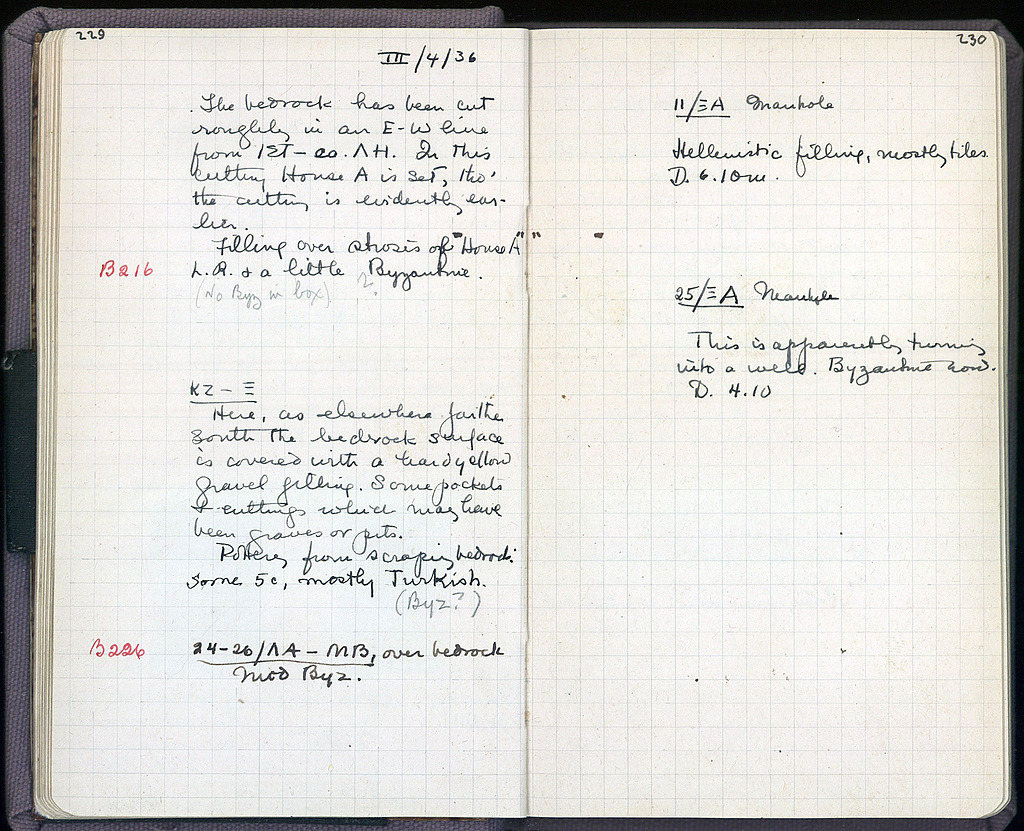 229
III/4/36
. The bedrock has been cut
roughly in an E-W line
from ΙΣΤ – co. ΛΗ. In this
cutting House A is set, tho'
the cutting is evidently ear-
lier.
Filling over strosis of "House A"
B216 L.R. & a little Byzantine.
(No Byz in box) ?
ΚΖ – Ξ
Here, as elsewhere farther
south the bedrock surface
is covered with a hard yellow
gravel filling. Some pockets
& cuttings which may have
been graves or pits.
Pottery from scraping bedrock:
some 5c, mostly Turkish.
(Byz?)
B226 24-26/ΛΑ – ΜΒ, over bedrock
Mod Byz.
230
11/ΞΑ Manhole
Hellenistic filling, mostly tiles.
D. 6.10m.
25/ΞΑ Manhole
This is apparently turning
into a well. Byzantine now.
D. 4.10